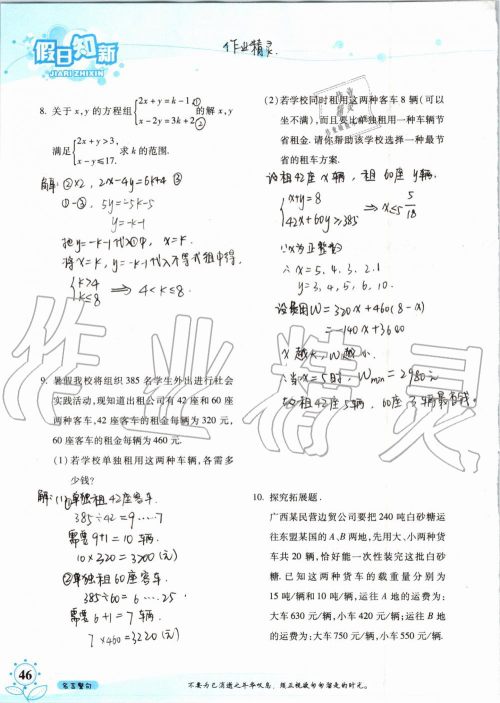 假日知新
JIARI ZHIXIN
作业精灵.
8. 关于 x, y 的方程组{2x+y=k-1,① x-2y=3k+2② 的解 x,y
满足{2x+y>3, x-y≤17. 求 k 的范围.
解: ②×2, 2x-4y=6k+4 ③
①-③, 5y=-5k-5
y=-k-1
把y=-k-1代入①中, x=k.
将x=k, y=-k-1代入不等式组中得,
{k>4 k≤8 ⇒ 4<k≤8.
9. 暑假我校将组织 385 名学生外出进行社会
实践活动,现知道出租公司有 42 座和 60 座
两种客车,42 座客车的租金每辆为 320 元,
60 座客车的租金每辆为 460 元.
(1)若学校单独租用这两种车辆,各需多
少钱?
解: (1)①单独租42座客车.
385÷42=9.....7
需要9+1=10辆车.
10×320=3200(元)
②单独租60座客车.
385÷60=6....25.
需要6+1=7辆车.
7×460=3220(元)
(2)若学校同时租用这两种客车 8 辆(可以
坐不满),而且要比单独租用一种车辆节
省租金. 请你帮助该学校选择一种最节
省的租车方案.
设租42座x辆, 租60座y辆.
{x+y=8 42x+60y≥385 ⇒ x≤5 5/18
∵x为正整数
∴x=5, 4, 3, 2, 1
y=3, 4, 5, 6,
设费用W=320x+460(8-x)
=-140x+3680
x越大, W越小.
∴当x=5时, Wmin=2980元
租42座5辆, 60座3辆最省钱.
10. 探究拓展题.
广西某民营边贸公司要把 240 吨白砂糖运
往东盟某国的 A,B 两地,先用大、小两种货
车共 20 辆,恰好能一次性装完这批白砂
糖. 已知这两种货车的载重量分别为
15 吨/辆和 10 吨/辆,运往 A 地的运费为:
大车 630 元/辆,小车 420 元/辆;运往 B 地
的运费为:大车 750 元/辆,小车 550 元/辆.
46
名言警句
不要为已消逝之年华叹息,须正视欲匆匆溜走的时光。
作业精灵